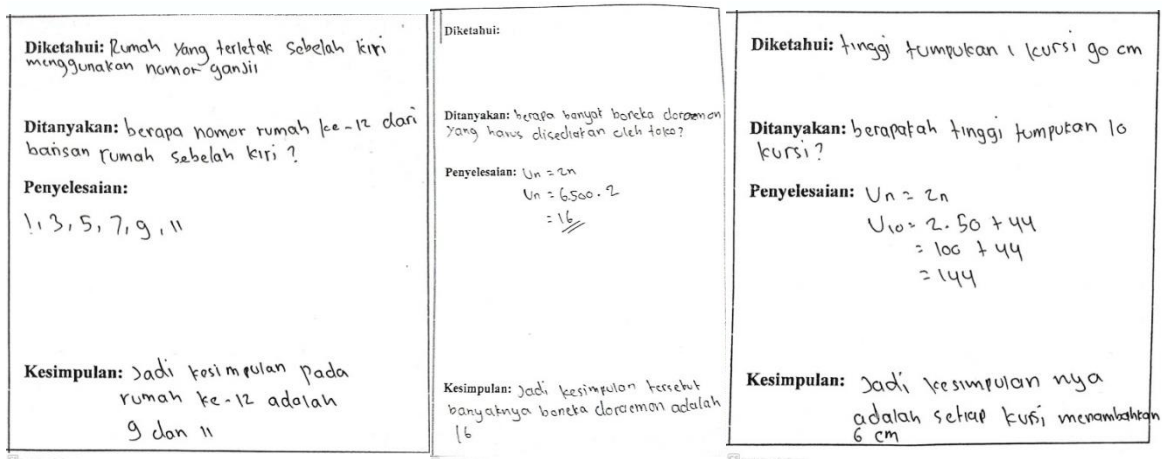 Diketahui: Rumah yang terletak sebelah kiri
menggunakan nomor ganjil
Ditanyakan: berapa nomor rumah ke-12 dari
barisan rumah sebelah kiri ?
Penyelesaian:
1, 3, 5, 7, 9, 11
Kesimpulan: Jadi kesimpulan pada
rumah ke-12 adalah
9 dan 11
Diketahui:
Ditanyakan: berapa banyak boneka doraemon
yang harus disediakan oleh toko?
Penyelesaian: Un = 2n
Un = 6.500 . 2
= 16
Kesimpulan: Jadi kesimpulan tersebut
banyaknya boneka doraemon adalah
16
Diketahui: tinggi tumpukan 1 kursi 90 cm
Ditanyakan: berapakah tinggi tumpukan 10
kursi?
Penyelesaian: Un = 2n
U10 = 2. 50 + 44
= 100 + 44
= 144
Kesimpulan: Jadi kesimpulan nya
adalah setiap kursi menambahkan
6 cm